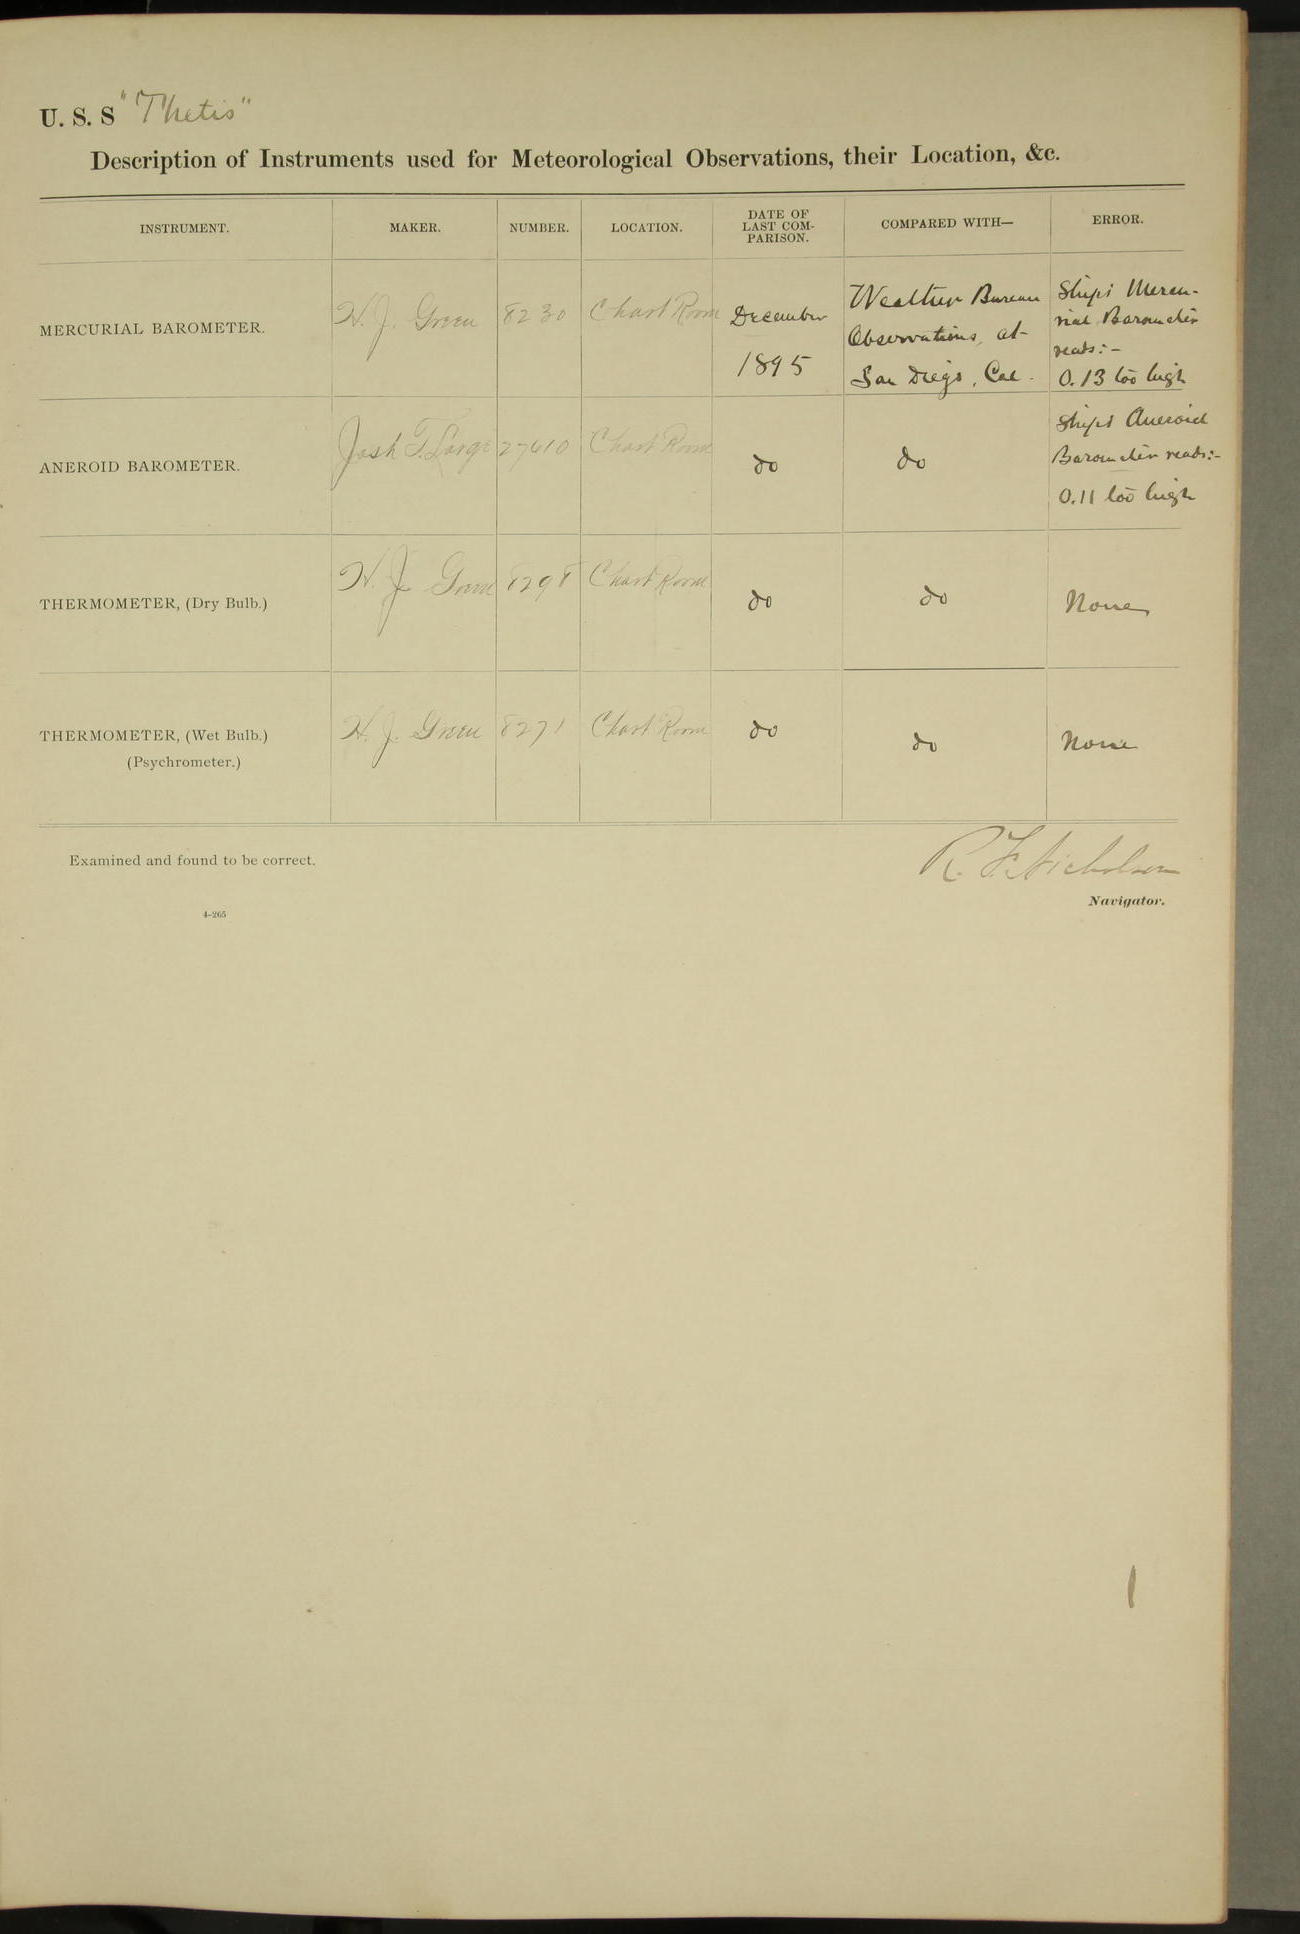 U. S. S "Thetis"
Description of Instruments used for Meteorological Observations, their Location, &c.
INSTRUMENT. MAKER. NUMBER. LOCATION. DATE OF LAST COM-PARISON. COMPARED WITH— ERROR.
MERCURIAL BAROMETER. H. J. Green 8230 Chart Room
December
1895
Weather Bureau
Observations, at
San Diego, Cal.
Ship's Mercu-
rial Barometer
reads:-
0.13 too high
ANEROID BAROMETER. 27610 Chart Room do do
Ship's Aneroid
Barometer reads:-
0.11 too high
THERMOMETER, (Dry Bulb.) H. J. Green 8298 Chart Room do do None
THERMOMETER, (Wet Bulb.) H. J. Green 8271 Chart Room do do None
(Psychrometer.)
Examined and found to be correct.
R. F. Nicholson
Navigator.
4-265
1